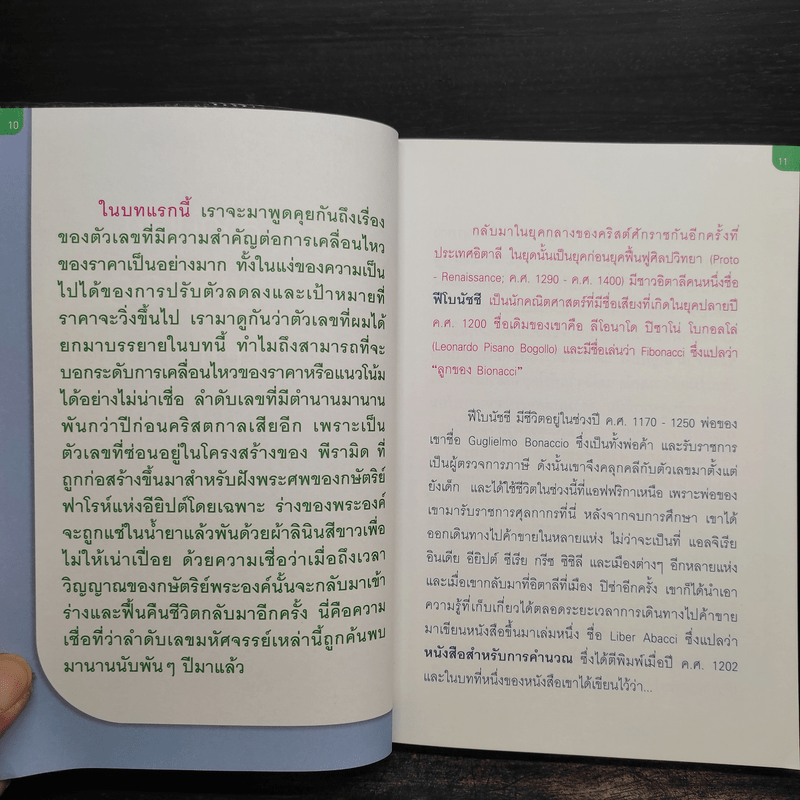 10
ในบทแรกนี้ เราจะมาพูดคุยกันถึงเรื่อง
ของตัวเลขที่มีความสำคัญต่อการเคลื่อนไหว
ของราคาเป็นอย่างมาก ทั้งในแง่ของความเป็น
ไปได้ของการปรับตัวลดลงและเป้าหมายที่
ราคาจะวิ่งขึ้นไป เรามาดูกันว่าตัวเลขที่ผมได้
ยกมาบรรยายในบทนี้ ทำไมถึงสามารถที่จะ
บอกระดับการเคลื่อนไหวของราคาหรือแนวโน้ม
ได้อย่างไม่น่าเชื่อ ลำดับเลขที่มีตำนานมานาน
พันกว่าปีก่อนคริสตกาลเสียอีก เพราะเป็น
ตัวเลขที่ซ่อนอยู่ในโครงสร้างของ พีรามิด ที่
ถูกก่อสร้างขึ้นมาสำหรับฝังพระศพของกษัตริย์
ฟาโรห์แห่งอียิปต์โดยเฉพาะ ร่างของพระองค์
จะถูกแช่ในน้ำยาแล้วพันด้วยผ้าลินินสีขาวเพื่อ
ไม่ให้เน่าเปื่อย ด้วยความเชื่อว่าเมื่อถึงเวลา
วิญญาณของกษัตริย์พระองค์นั้นจะกลับมาเข้า
ร่างและฟื้นคืนชีวิตกลับมาอีกครั้ง นี่คือความ
เชื่อที่ว่าลำดับเลขมหัศจรรย์เหล่านี้ถูกค้นพบ
มานานนับพันๆ ปีมาแล้ว
11
กลับมาในยุคกลางของคริสต์ศักราชกันอีกครั้งที่
ประเทศอิตาลี ในยุคนั้นเป็นยุคก่อนยุคฟื้นฟูศิลปวิทยา (Proto
- Renaissance; ค.ศ. 1290 - ค.ศ. 1400) มีชาวอิตาลีคนหนึ่งชื่อ
ฟีโบนัชชี เป็นนักคณิตศาสตร์ที่มีชื่อเสียงที่เกิดในยุคปลายปี
ค.ศ. 1200 ชื่อเดิมของเขาคือ ลีโอนาโด ปิซาโน่ โบกอลโล่
(Leonardo Pisano Bogollo) และมีชื่อเล่นว่า Fibonacci ซึ่งแปลว่า
"ลูกของ Bionacci"
ฟีโบนัชชี มีชีวิตอยู่ในช่วงปี ค.ศ. 1170 - 1250 พ่อของ
เขาชื่อ Guglielmo Bonaccio ซึ่งเป็นทั้งพ่อค้า และรับราชการ
เป็นผู้ตรวจการภาษี ดังนั้นเขาจึงคลุกคลีกับตัวเลขมาตั้งแต่
ยังเด็ก และได้ใช้ชีวิตในช่วงนี้ที่แอฟฟริกาเหนือ เพราะพ่อของ
เขามารับราชการศุลกากรที่นี่ หลังจากจบการศึกษา เขาได้
ออกเดินทางไปค้าขายในหลายแห่ง ไม่ว่าจะเป็นที่ แอลจิเรีย
อินเดีย อียิปต์ ซีเรีย กรีซ ซิซิลี และเมืองต่างๆ อีกหลายแห่ง
และเมื่อเขากลับมาที่อิตาลีที่เมือง ปิซ่าอีกครั้ง เขาก็ได้นำเอา
ความรู้ที่เก็บเกี่ยวได้ตลอดระยะเวลาการเดินทางไปค้าขาย
มาเขียนหนังสือขึ้นมาเล่มหนึ่ง ชื่อ Liber Abacci ซึ่งแปลว่า
หนังสือสำหรับการคำนวณ ซึ่งได้ตีพิมพ์เมื่อปี ค.ศ. 1202
และในบทที่หนึ่งของหนังสือเขาได้เขียนไว้ว่า...